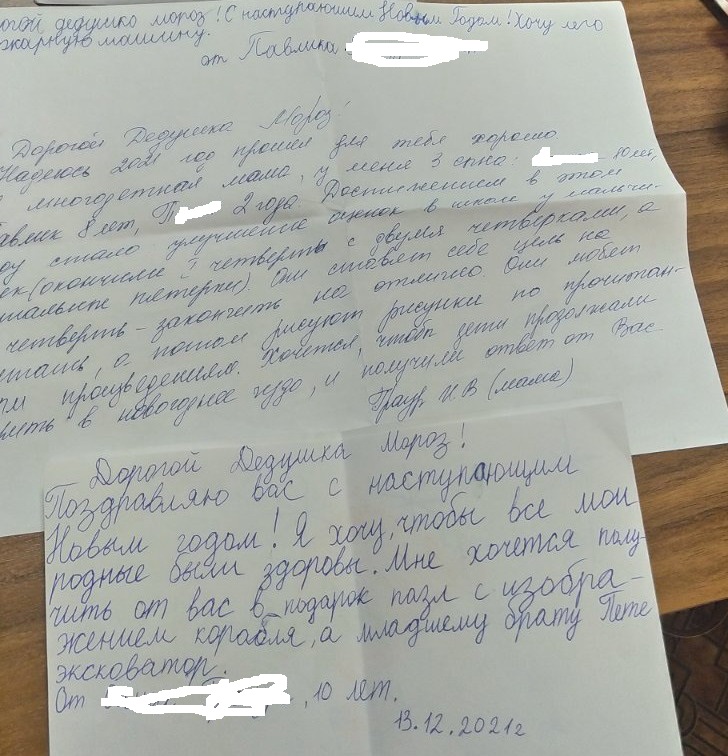 дедушко мороз! С наступающим Новым Годом! Хочу лего
машину.
от Павлика
Дорогой Дедушка Мороз!
Надеюсь 2021 год прошел для тебя хорошо
многодетная мама, у меня 3 сына: 10 лет,
8 лет, П 2 года. Достижением в этом
стало улучшение оценок в школе у мальчи-
(окончили I четверть с двумя четверками, а
пятерки). Они ставят себе цель на
четверть - закончить на отлично. Они любят
а потом рисуют рисунки по прочитан-
произведениям. Хочется, чтобы дети продолжали
в новогоднее чудо, и получили ответ от Вас
Праур И В (мама)
Дорогой Дедушка Мороз!
Поздравляю вас с наступающим
Новым годом! Я хочу, чтобы все мои
родные были здоровы. Мне хочется полу-
чить от вас в подарок пазл с изобра-
жением корабля, а младшему брату Пете
эксковатор.
От , 10 лет.
13.12.2021г